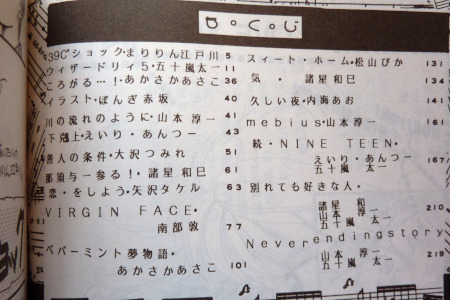 もくじ
39C°ショック・まりりん江戸川 5
ウィザードリィ5・五十嵐太一 11
ころがる…!・あかさかあさこ 36
イラスト・ぽんぎ赤坂 40
川の流れのように・山本淳一 41
下剋上・えいり・あんつー 43
善人の条件・大沢つみれ 51
那須与一参る!・諸星和巳 61
恋・をしよう・矢沢タケル 63
VIRGIN FACE・
南部敦 77
ペパーミント夢物語・
あかさかあさこ 101
スィート・ホーム・松山ぴか 131
気・諸星和巳 134
久しい夜・内海あお 141
mebius・山本淳一 161
続・NINE TEEN・
えいり・あんつー
五十嵐太一 167
別れても好きな人・
諸星和
山本淳一
五十嵐太 210
Neverendingstory
山本淳一
五十嵐太一 219